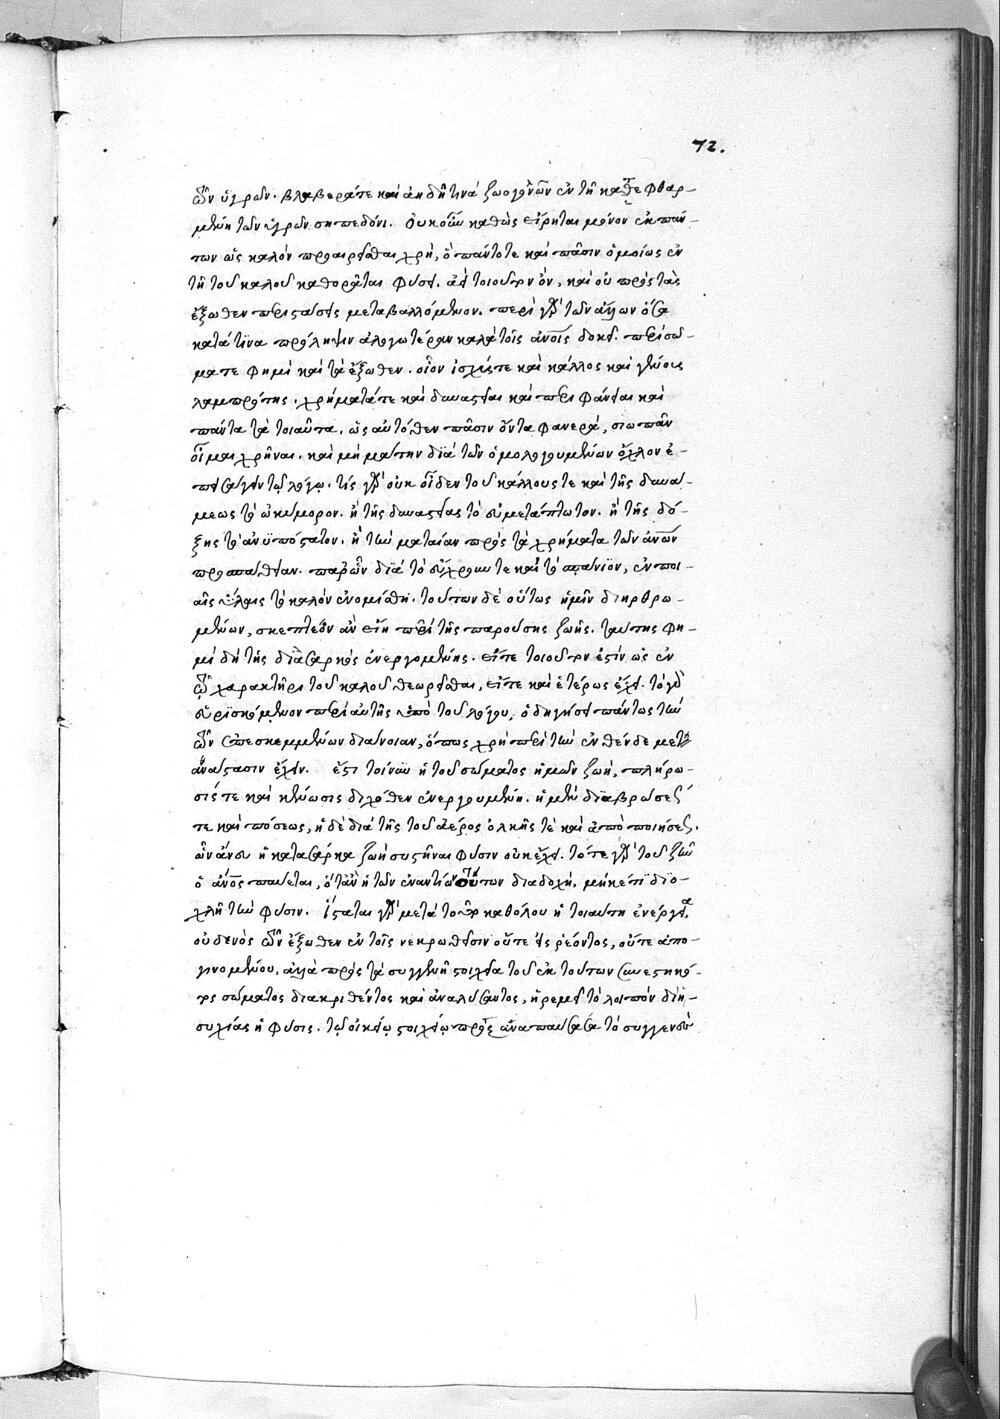 72.
τῶν ὑγρῶν. βλαβερά τε καὶ ἀηδῆ τινά ζωογονῶν ἐν τῆ κατε φθαρ-
μένη τῶν ὑγρῶν σηπεδόνι. Οὐκοῦν καθὼς εἴρηται μόνον ἐκ πάν
των ὡς καλὸν προαιρεῖσθαι χρὴ, ὃ πάντοτε καὶ πᾶσιν ὁμοίως ἐν
τῆ τοῦ καλοῦ καθορᾶται φύσει. ἀεὶ τοιοῦτον ὂν, καὶ οὐ πρὸς τὰς
ἔξωθεν περιστάσεις μεταβαλλόμενον. περὶ γὰρ τῶν ἄλλων ὅσα
κατά τινα πρόληψιν ἀλογωτέραν καλὰ τοῖς ἀνοις δοκεῖ. περὶ σῶ-
μά τε φημὶ καὶ τὰ ἔξωθεν. οἷον ἰσχύς τε καὶ κάλλος καὶ γένους
λαμπρότης. χρήματά τε καὶ δυναστεῖαι καὶ περιφάνειαι καὶ
πάντα τὰ τοιαῦτα, ὡς αὐτόθεν πᾶσιν ὄντα φανερά, σιωπᾶν
οἶμαι χρῆναι. καὶ μὴ μάτην διὰ τῶν ὁμολογουμένων ὄχλον ἐ-
πεισάγειν τῷ λόγῳ. τίς γὰρ οὐκ οἶδεν τοῦ κάλλους τε καὶ τῆς δυνά-
μεως τὸ ὠκύμορον. ἢ τῆς δυναστείας τὸ εὐμετάπτωτον. ἢ τῆς δό-
ξης τὸ ἀνυπόστατον. ἢ τὴν ματαίαν πρὸς τὰ χρήματα τῶν ἀνων
προσπάθειαν. παρ ὧν διὰ τὸ εὔχρουν τε καὶ τὸ σπάνιον, ἐν ποι-
αῖς ὕλαις τὸ καλὸν ἐνομίσθη. τούτων δὲ οὕτως ἡμῖν διηρθρω-
μένων, σκεπτέον ἂν εἴη περὶ τῆς παρούσης ζωῆς. ταύτης φη-
μὶ δὴ τῆς διὰ σαρκὸς ἐνεργουμένης. εἴτε τοιοῦτον ἐστὶν ὡς ἐν
τῷ χαρακτῆρι τοῦ καλοῦ θεωρεῖσθαι, εἴτε καὶ ἑτέρως ἔχει. τὸ γὰρ
εὑρισκόμενον περὶ αὐτῆς ὑπὸ τοῦ λόγου, ὁδηγήσει πάντως τὴν
τῶν ἐπεσκεμμένων διάνοιαν, ὅπως χρὴ περὶ τὴν ἐνθένδε μετα
νάστασιν ἔχειν. ἔστι τοίνυν ἡ τοῦ σώματος ἡμῶν ζωὴ, πλήρω-
σίς τε καὶ κένωσις διχόθεν ἐνεργουμένη. ἡ μὲν διὰ βρώσεώς
τε καὶ πόσεως, ἡ δὲ διὰ τῆς τοῦ ἀέρος ὁλκῆς τὲ καὶ ἀποποιήσεως.
ὧν ἄνευ ἡ κατὰ σάρκα ζωὴ συστῆναι φύσιν οὐκ ἔχει. τότε γὰρ τοῦ ζῆν
ὁ ἄνος παύεται, ὅταν ἡ τῶν ἐναντίων τούτων διαδοχὴ, μηκέτι διο-
χλῆ τὴν φύσιν. Ἵσταται γὰρ μετὰ τοῦτο καθόλου ἡ τοιαύτη ἐνέργεια
οὐδενὸς τῶν ἔξωθεν ἐν τοῖς νεκρωθεῖσιν οὔτε εἰσρέοντος, οὔτε ἀπο-
γινομένου, ἀλλὰ πρὸς τὰ συγγενῆ στοιχεῖα τοῦ ἐκ τούτων συνεστηκό-
τος σώματος διακριθέντος καὶ ἀναλύσαντος, ἠρεμεῖ τὸ λοιπὸν δι ἡ-
συχίας ἡ φύσις. τῷ οἰκείῳ στοιχείῳ προς αναπαύσασα τὸ συγγενὲς